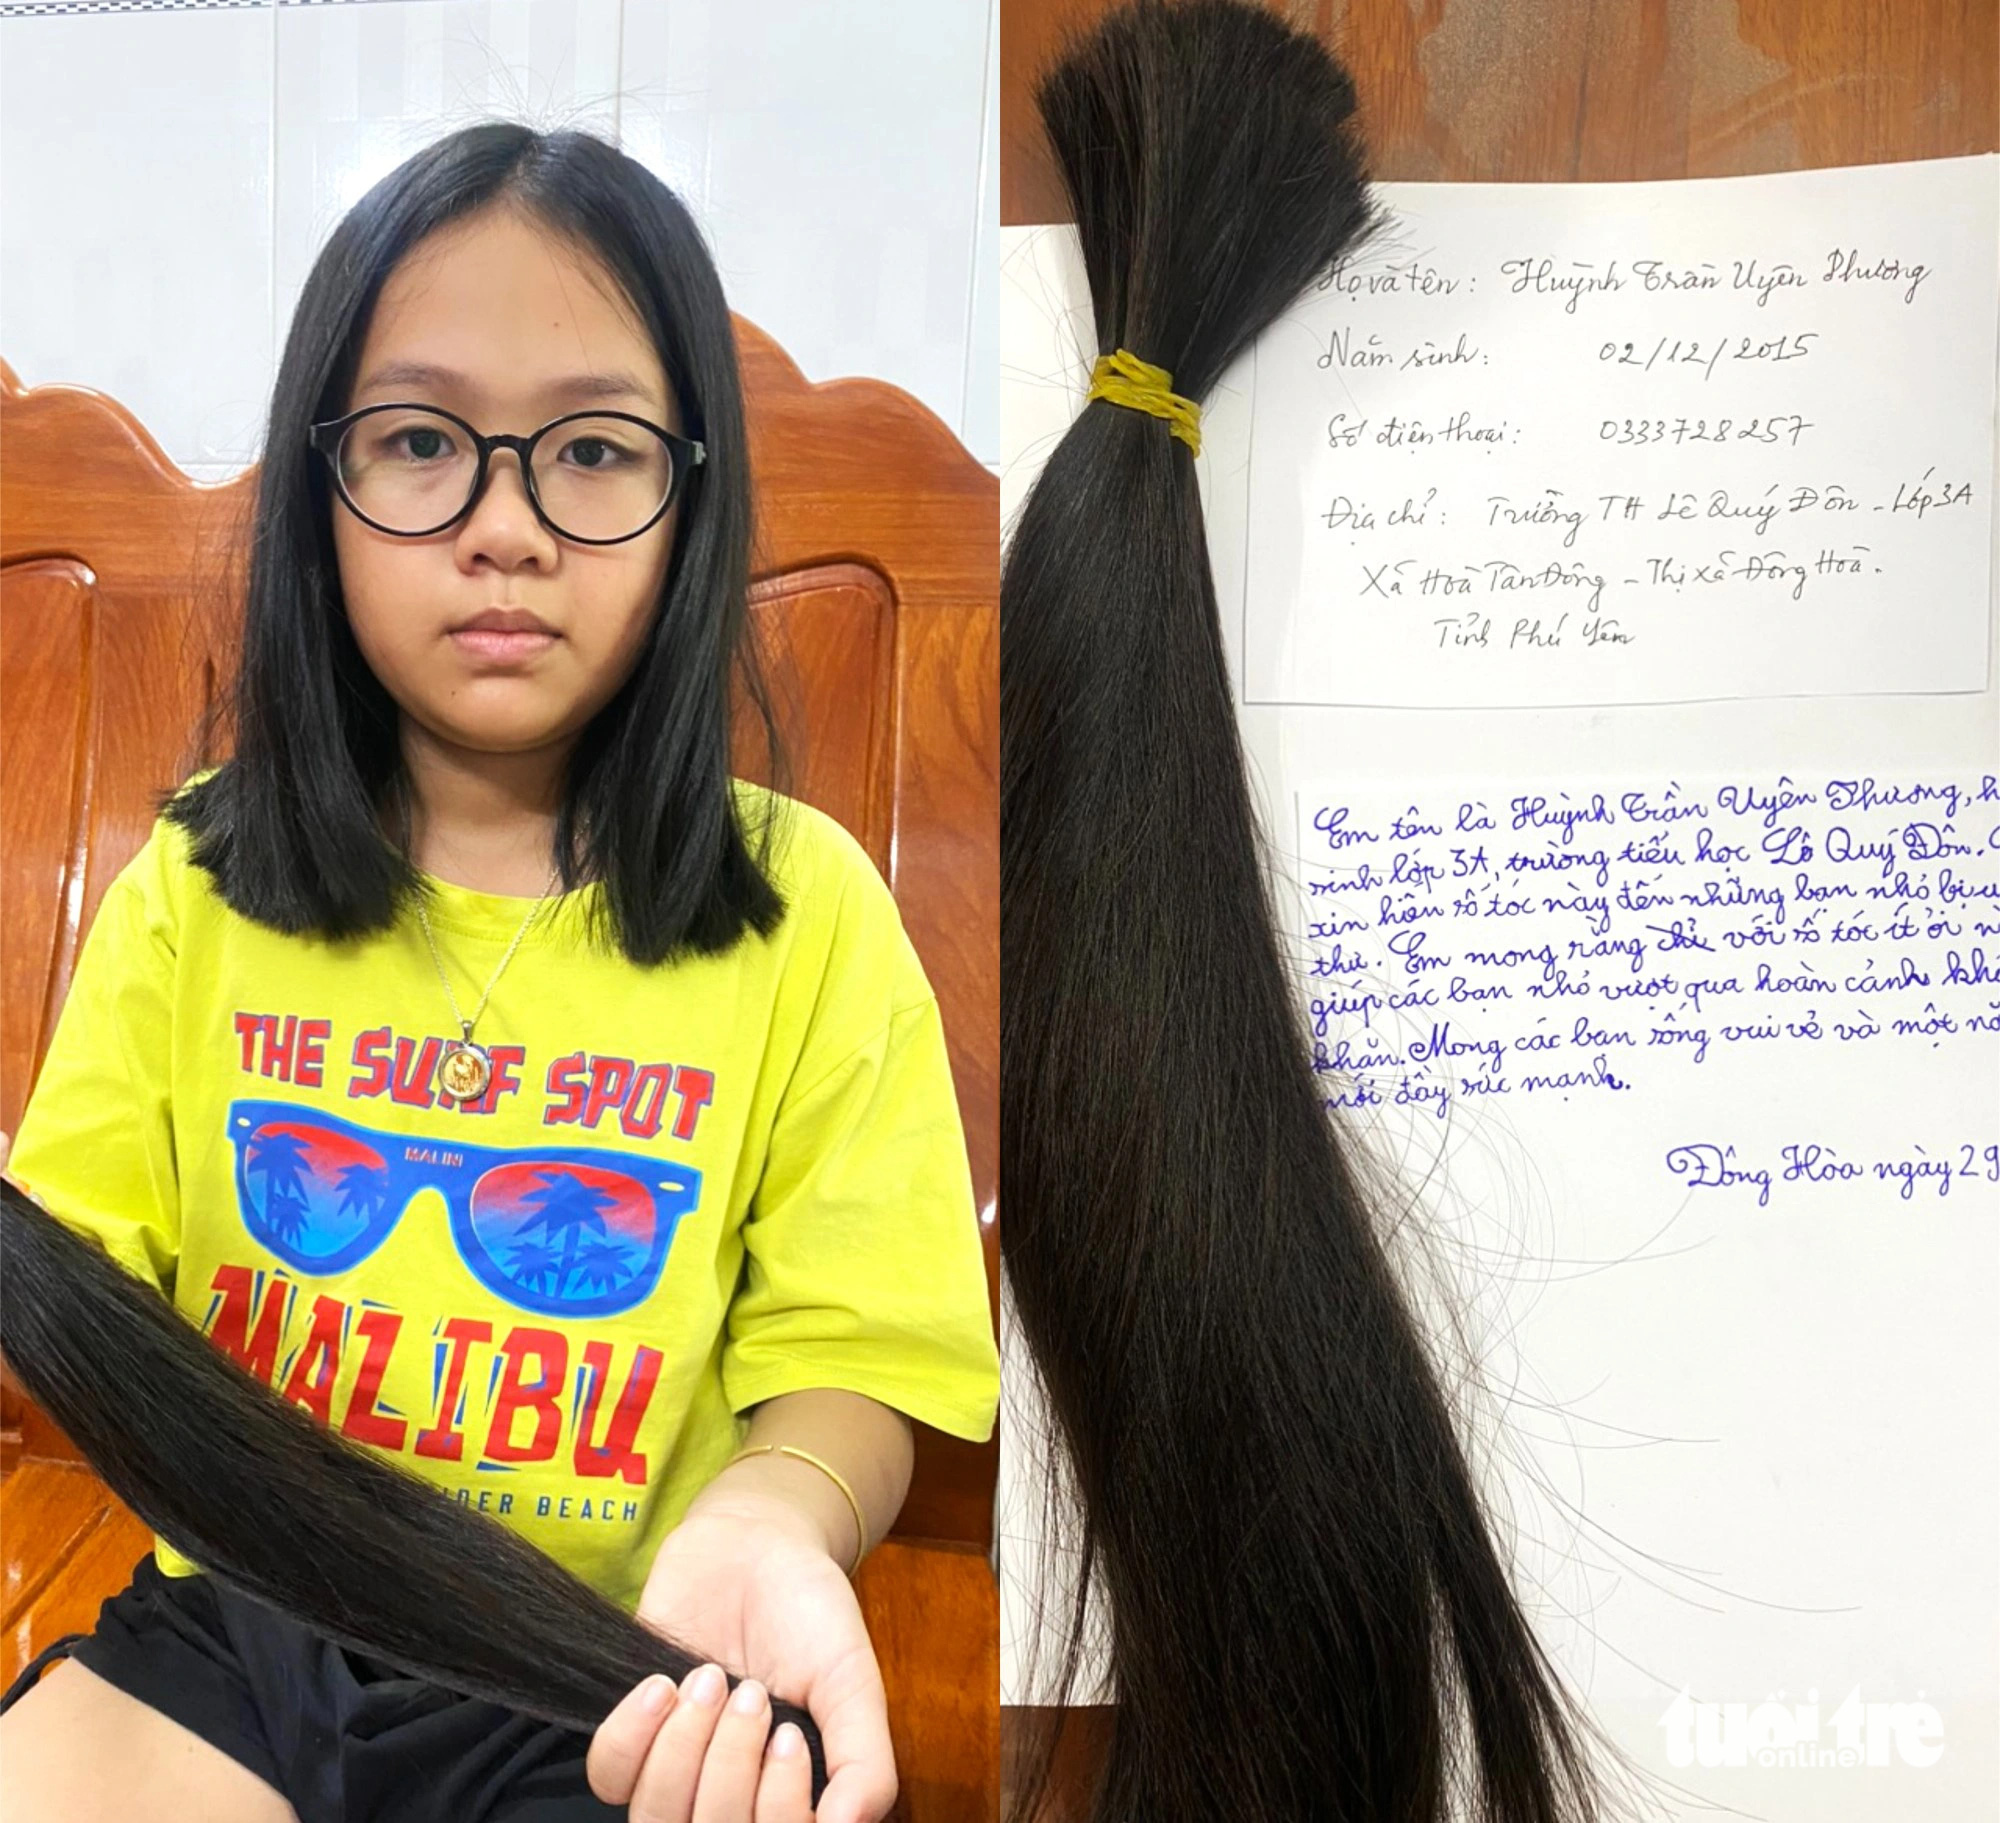 THE SURF SPOT
MALIBU
BEACH
Họ và tên : Huỳnh Trần Uyên Phương
Năm sinh : 02/12/2015
Số điện thoại : 0333728257
Địa chỉ : Trường TH Lê Quý Đôn - Lớp 3A
Xã Hoà Tân Đông - Thị xã Đông Hoà.
Tỉnh Phú Yên
Em tên là Huỳnh Trần Uyên Phương, h
sinh lớp 3A, trường tiểu học Lê Quý Đôn.
xin hiến số tóc này đến những bạn nhỏ bị u
thư. Em mong rằng với số tóc ít ỏi n
giúp các bạn nhỏ vượt qua hoàn cảnh khó
khăn. Mong các bạn sống vui vẻ và một nă
mới đầy sức mạnh.
Đông Hòa ngày 29
tuổi trẻ
online